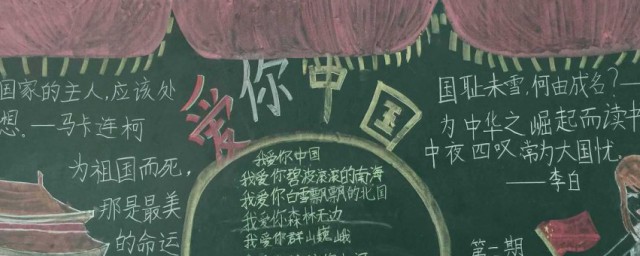 爱你中国
国家的主人,应该处
想.——马卡连柯
为祖国而死,
那是最美
的命运
我爱你中国
我爱你碧波滚滚的南海
我爱你白雪飘飘的北国
我爱你森林无边
我爱你群山巍峨
国耻未雪,何由成名?—
为中华之崛起而读书
中夜四叹,常为大国忧.
——李白
第二期